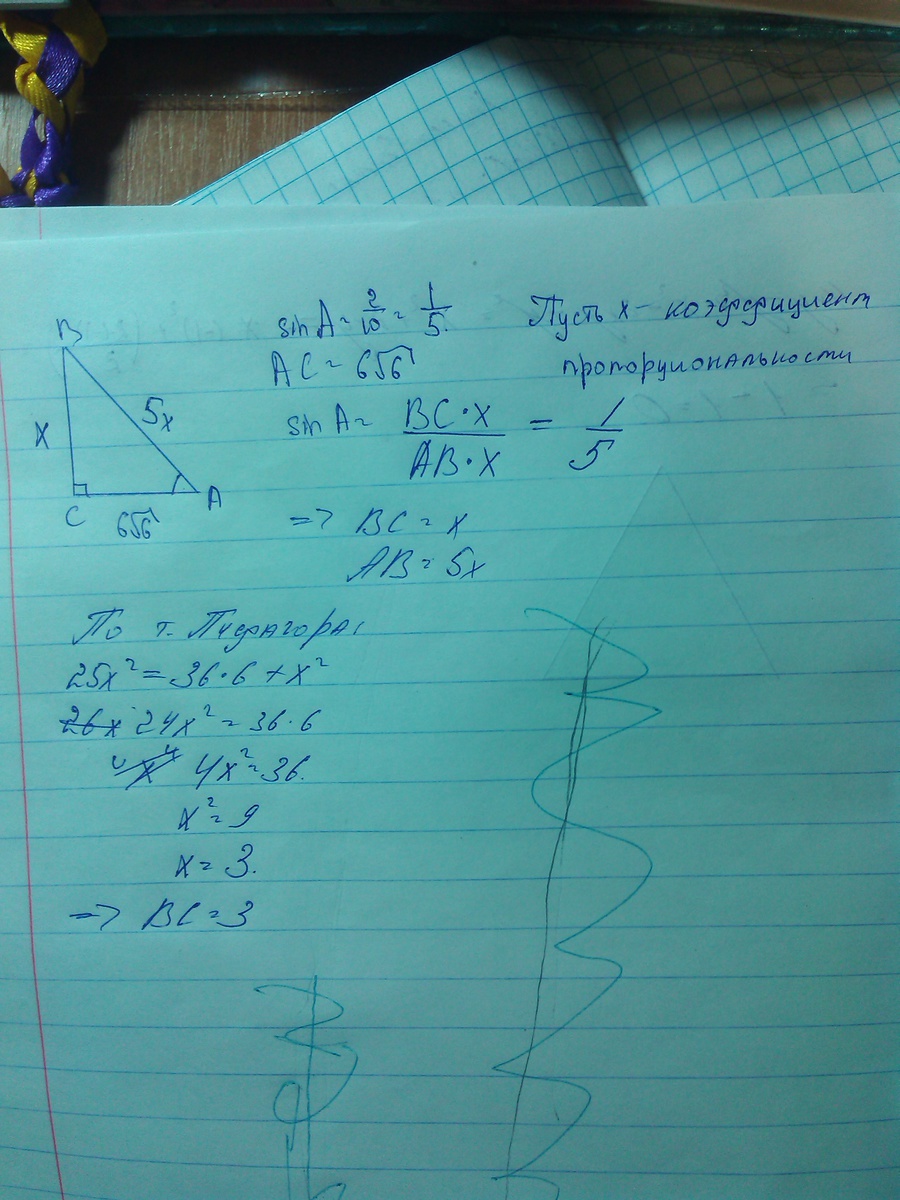 B
x
5x
C
A
6√6
sin A = 2/10 = 1/5.
AC = 6√6
Пусть x - коэффициент
пропорциональности
sin A = BC·x / AB·x = 1/5
=> BC = x
AB = 5x
По т. Пифагора:
25x² = 36·6 + x²
26x 24x² = 36·6
4x² = 36.
x² = 9
x = 3.
=> BC = 3